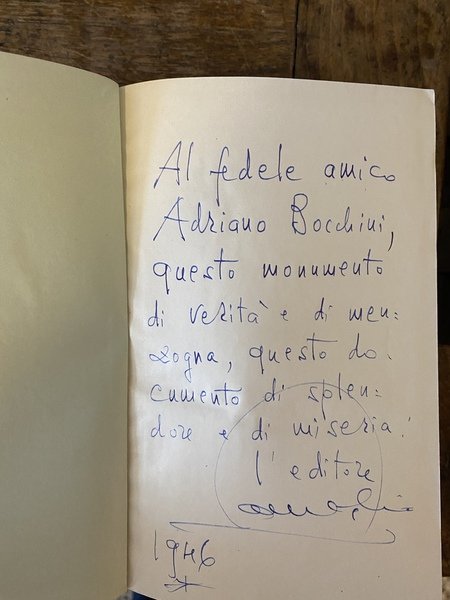 Al fedele amico
Adriano Bocchini,
questo monumento
di verità e di men=
zogna, questo do=
cumento di splen=
dore e di miseria!
l'editore
1946